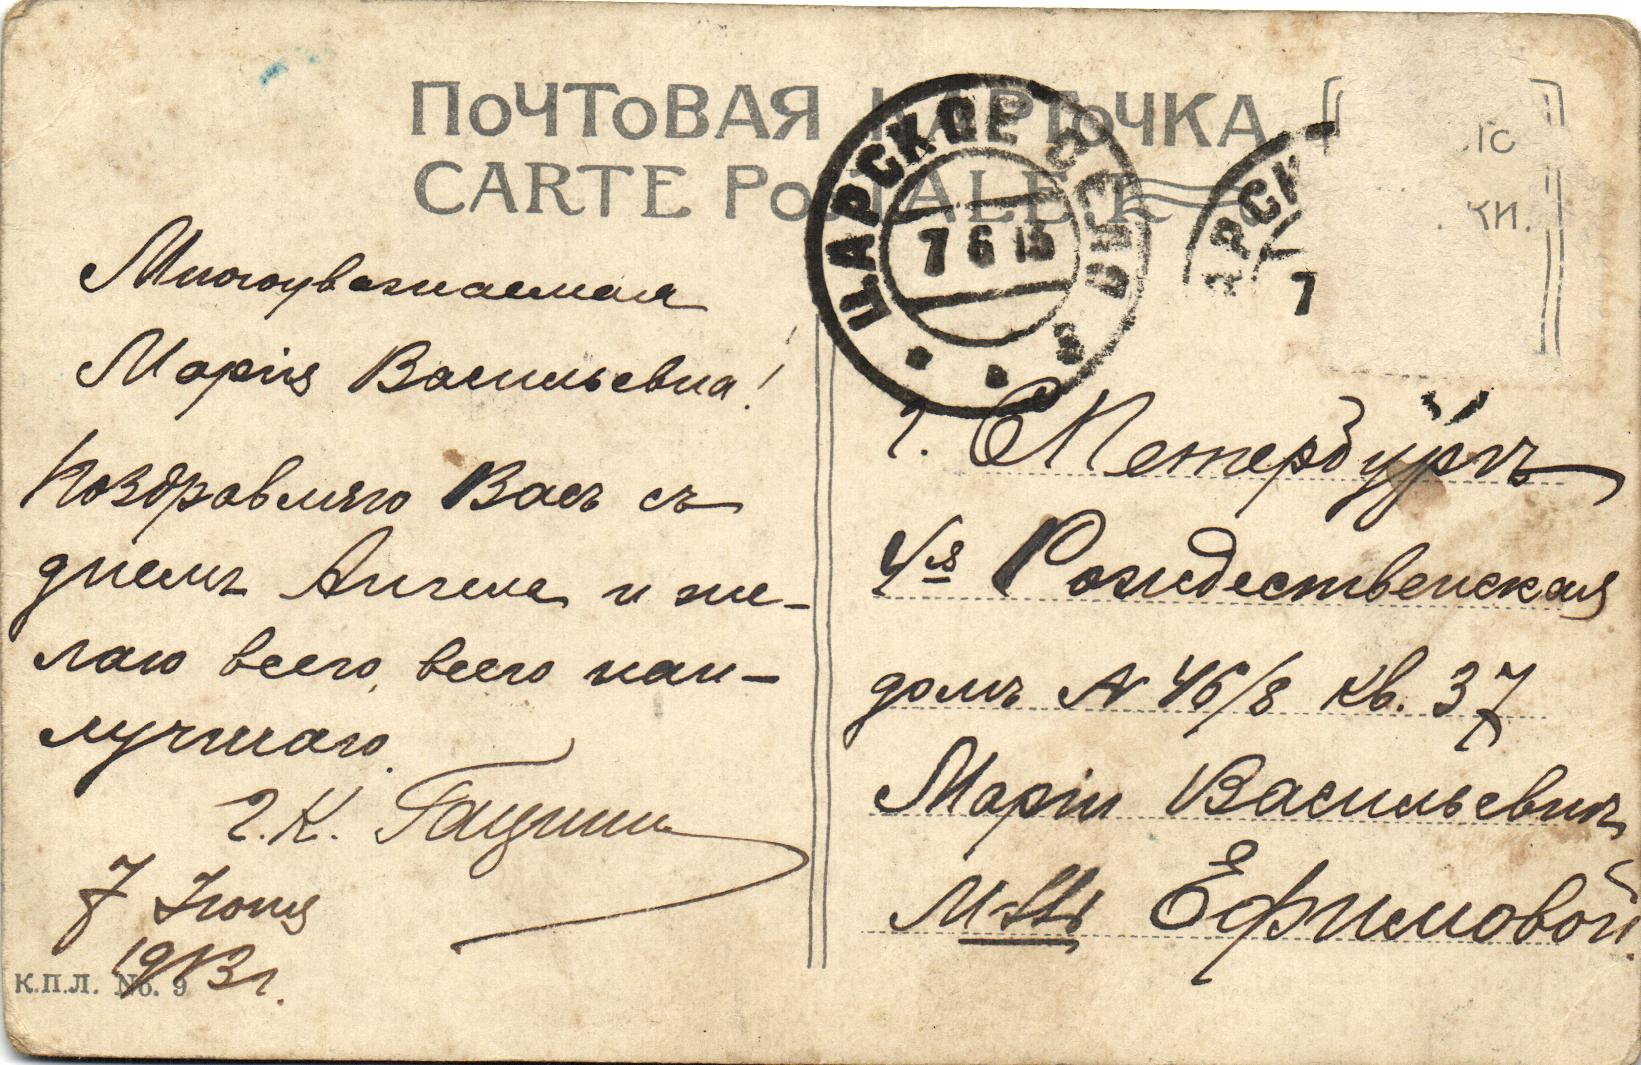 ПОЧТОВАЯ КАРТОЧКА
CARTE POSTALE
ЦАРСКОЕ СЕЛО
7 6 13
АРСК
7
Многоуважаемая
Марія Васильевна!
Поздравляю Васъ съ
днемъ Ангела и же-
лаю всего, всего наи-
лучшаго.
Г. К.
7 Іюня
1913 г.
К.П.Л. No. 9
г. С Петербургъ
4ая Рождественская
домъ № 46/8 кв. 37
Маріи Васильевнѣ
Ефимовой.